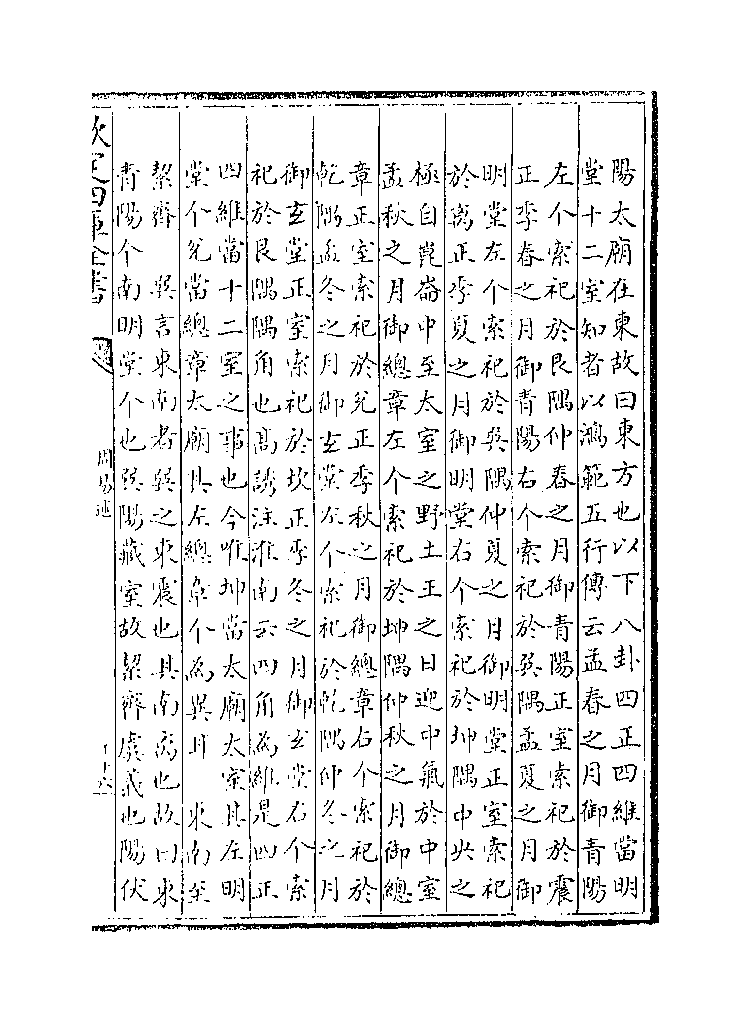 陽太廟在東故曰東方也以下八卦四正四維當明
堂十二室知者以鴻範五行傳云孟春之月御青陽
左个索祀於艮隅仲春之月御青陽正室索祀於震
正季春之月御青陽右个索祀於巽隅孟夏之月御
明堂左个索祀於巽隅仲夏之月御明堂正室索祀
於离正季夏之月御明堂右个索祀於坤隅中央之
極自崑崙中至太室之野土王之日迎中氣於中室
孟秋之月御總章左个索祀於坤隅仲秋之月御總
章正室索祀於兌正季秋之月御總章右个索祀於
乾隅孟冬之月御玄堂左个索祀於乾隅仲冬之月
御玄堂正室索祀於坎正季冬之月御玄堂右个索
祀於艮隅隅角也高誘注淮南云四角為維是四正
四維當十二室之事也今唯坤當太廟太室其左明
堂个兌當總章太廟其左總章个為異耳　東南至
絜齊　巽言東南者巽之東震也其南离也故曰東
青陽个南明堂个也巽陽藏室故絜齊虞義也陽伏
欽定四庫全書
周易述